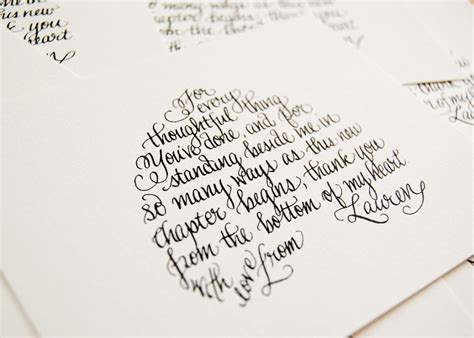 this new
you
heart
so many ways as this new
chapter begins, thank you
from the
thank you
of my heart
For
every
thoughtful thing
You've done, and for
standing beside me in
so many ways as this new
chapter begins, thank you
from the bottom of my heart
with love from Lauren